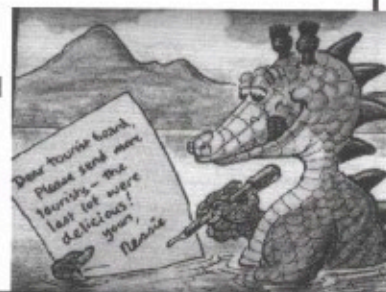 Dear tourist board,
Please send more
tourists – the
last lot were
delicious!
yours,
Nessie